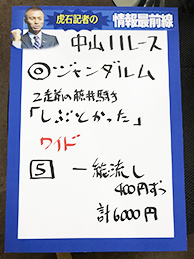 虎石記者の
情報最前線
中山11レース
◎ジャンダルム
2走前の藤井騎手
「しぶとかった」
ワイド
5 一 総流し
400円ずつ
計6000円